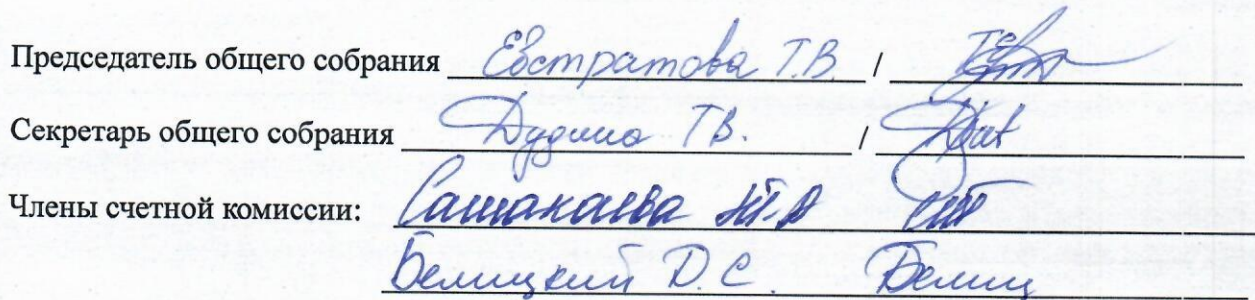 Председатель общего собрания Евстратова Т.В. /
Секретарь общего собрания Дудина Т.В. /
Члены счетной комиссии:
Белицкий Д.С. Белиц